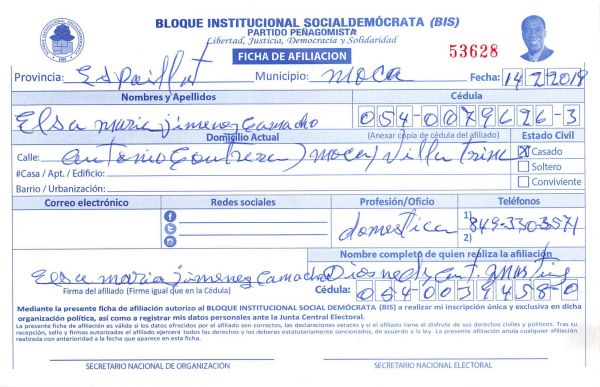 BLOQUE INSTITUCIONAL SOCIALDEMÓCRATA (BIS)
PARTIDO PEÑAGOMISTA
Libertad, Justicia, Democracia y Solidaridad
FICHA DE AFILIACION
53628
Provincia: Espaillat Municipio: moca Fecha: 14/2/2019
Nombres y Apellidos Cédula
Elsa maria jimenez Camacho 054-0079626-3
Domicilio Actual (Anexar copia de cédula del afiliado) Estado Civil
Calle: antonio Contrera) moca/ villa trina Casado
#Casa / Apt. / Edificio: Soltero
Barrio / Urbanización: Conviviente
Correo electrónico Redes sociales Profesión/Oficio Teléfonos
domestica 1) 849-330-3571
2)
Nombre completo de quien realiza la afiliación
Elsa maria jimenez Camacho
Firma del afiliado (Firme igual que en la Cédula) Cédula: 054-0039458-0
Mediante la presente ficha de afiliación autorizo al BLOQUE INSTITUCIONAL SOCIAL DEMÓCRATA (BIS) a realizar mi inscripción única y exclusiva en dicha
organización política, así como a registrar mis datos personales ante la Junta Central Electoral.
La presente ficha de afiliación es válida si los datos ofrecidos por el afiliado son correctos, las declaraciones veraces y si el afiliado tiene el disfrute de sus derechos civiles y políticos. Tras su
recepción, sello y firmas autorizadas el afiliado ejercerá todos los derechos y los deberes estatutariamente sancionados, de acuerdo a la ley. La presente afiliación anula cualquier afiliación
realizada con anterioridad a la fecha que aparece en esta ficha.
SECRETARIO NACIONAL DE ORGANIZACIÓN SECRETARIO NACIONAL ELECTORAL